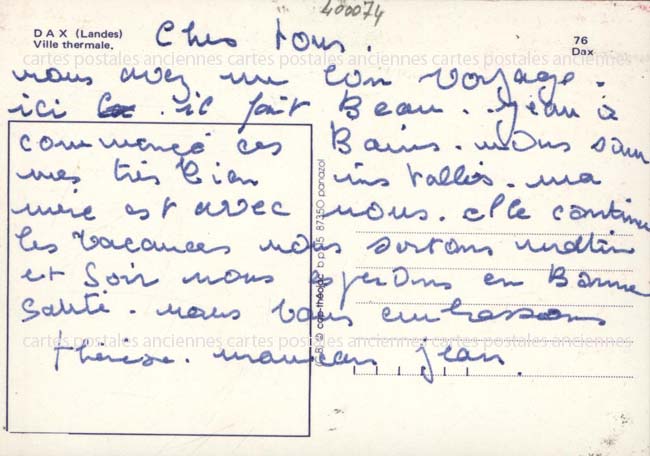 400074
DAX (Landes)
Ville thermale.
76
Dax
Chers tous.
cartes postales anciennes cartes postales anciennes cartes postales anciennes
nous avez un bon voyage.
ici il fait Beau. Jean à
commencé ces Bains. nous som
mes très bien ins tallés. ma
mère est avec nous. elle continue
les vacances nous sortons matin
et Soir nous esperons en Bonne
Santé. nous vous embrassons
cartes postales anciennes cartes postales anciennes cartes postales anciennes
thérèse. maman Jean.
b.p. 87350 panazol